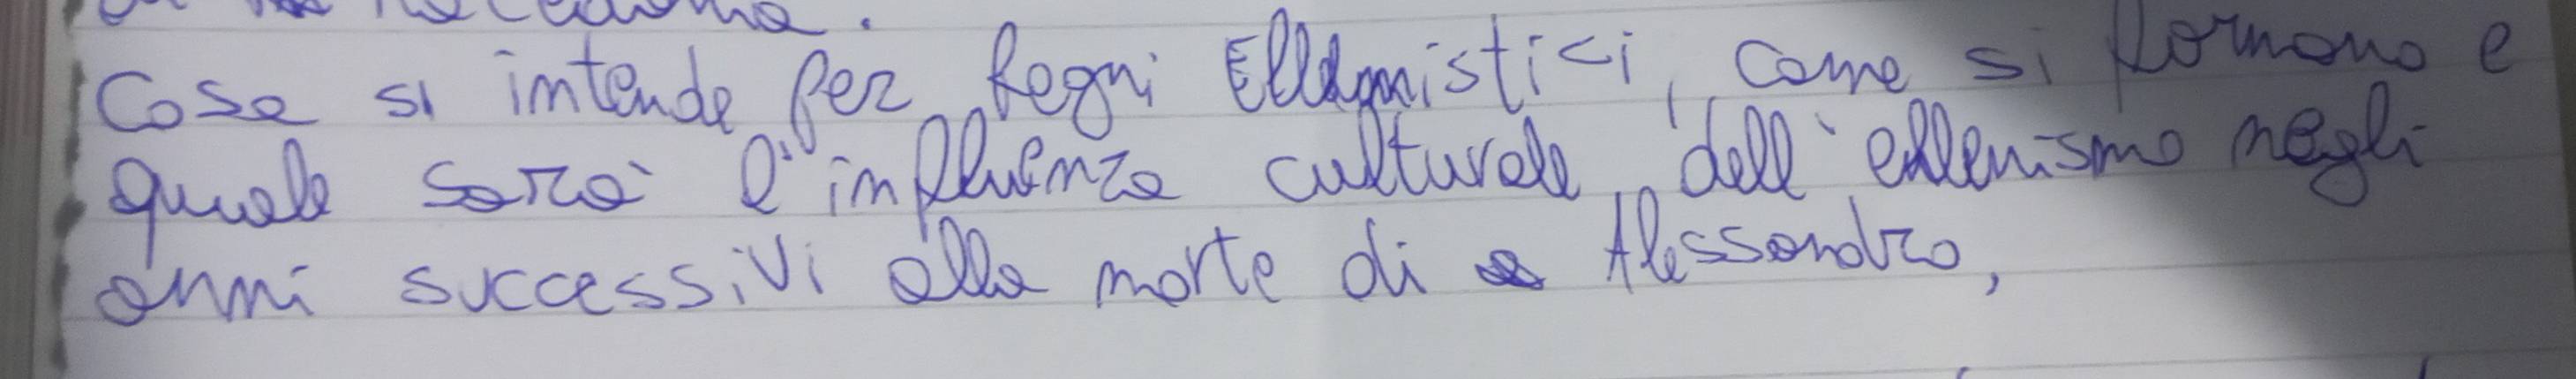 Cosa si intende per Regni Ellenistici, come si formano e
quale sarà l'influenza culturale dell'ellenismo negli
anni successivi alla morte di Alessandro,